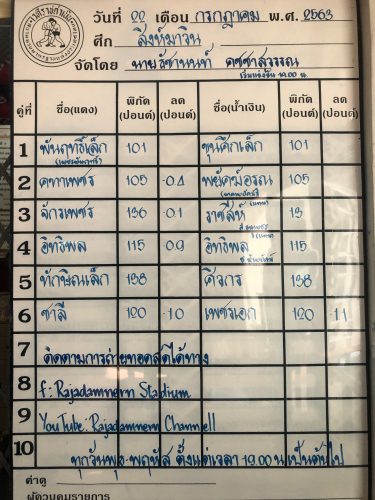 วันที่ 22 เดือน กรกฎาคม พ.ศ. 2563
ศึก สิงห์มาวิน
จัดโดย นายวัชานนท์
เริ่มแข่งขัน 19.00 น.
คู่ที่ ชื่อ(แดง) พิกัด (ปอนด์) ลด (ปอนด์) ชื่อ(น้ำเงิน) พิกัด (ปอนด์) ลด (ปอนด์)
1 พันฤทธิ์เล็ก 101 ขุนศึกเล็ก 101
2 คทาเพชร 105 -0.4 พยัคฆ์อรุณ 105
3 จักรเพชร 136 -0.1 ราชสีห์
4 อิทธิพล 115 -0.9 อิทธิพล 115
5 ทักษิณเล็ก 138 ศิวกร 138
6 ชาลี 120 -1.0 เพชรเอก 120 -1.1
7 ติดตามการถ่ายทอดสดได้ทาง
8 f: Rajadamnern Stadium
9 YouTube: Rajadamnern Channell
10 ทุกวันพุธ-พฤหัส ตั้งแต่เวลา 19.00 น.เป็นต้นไป
ค่าดู
ผู้ควบคุมรายการ